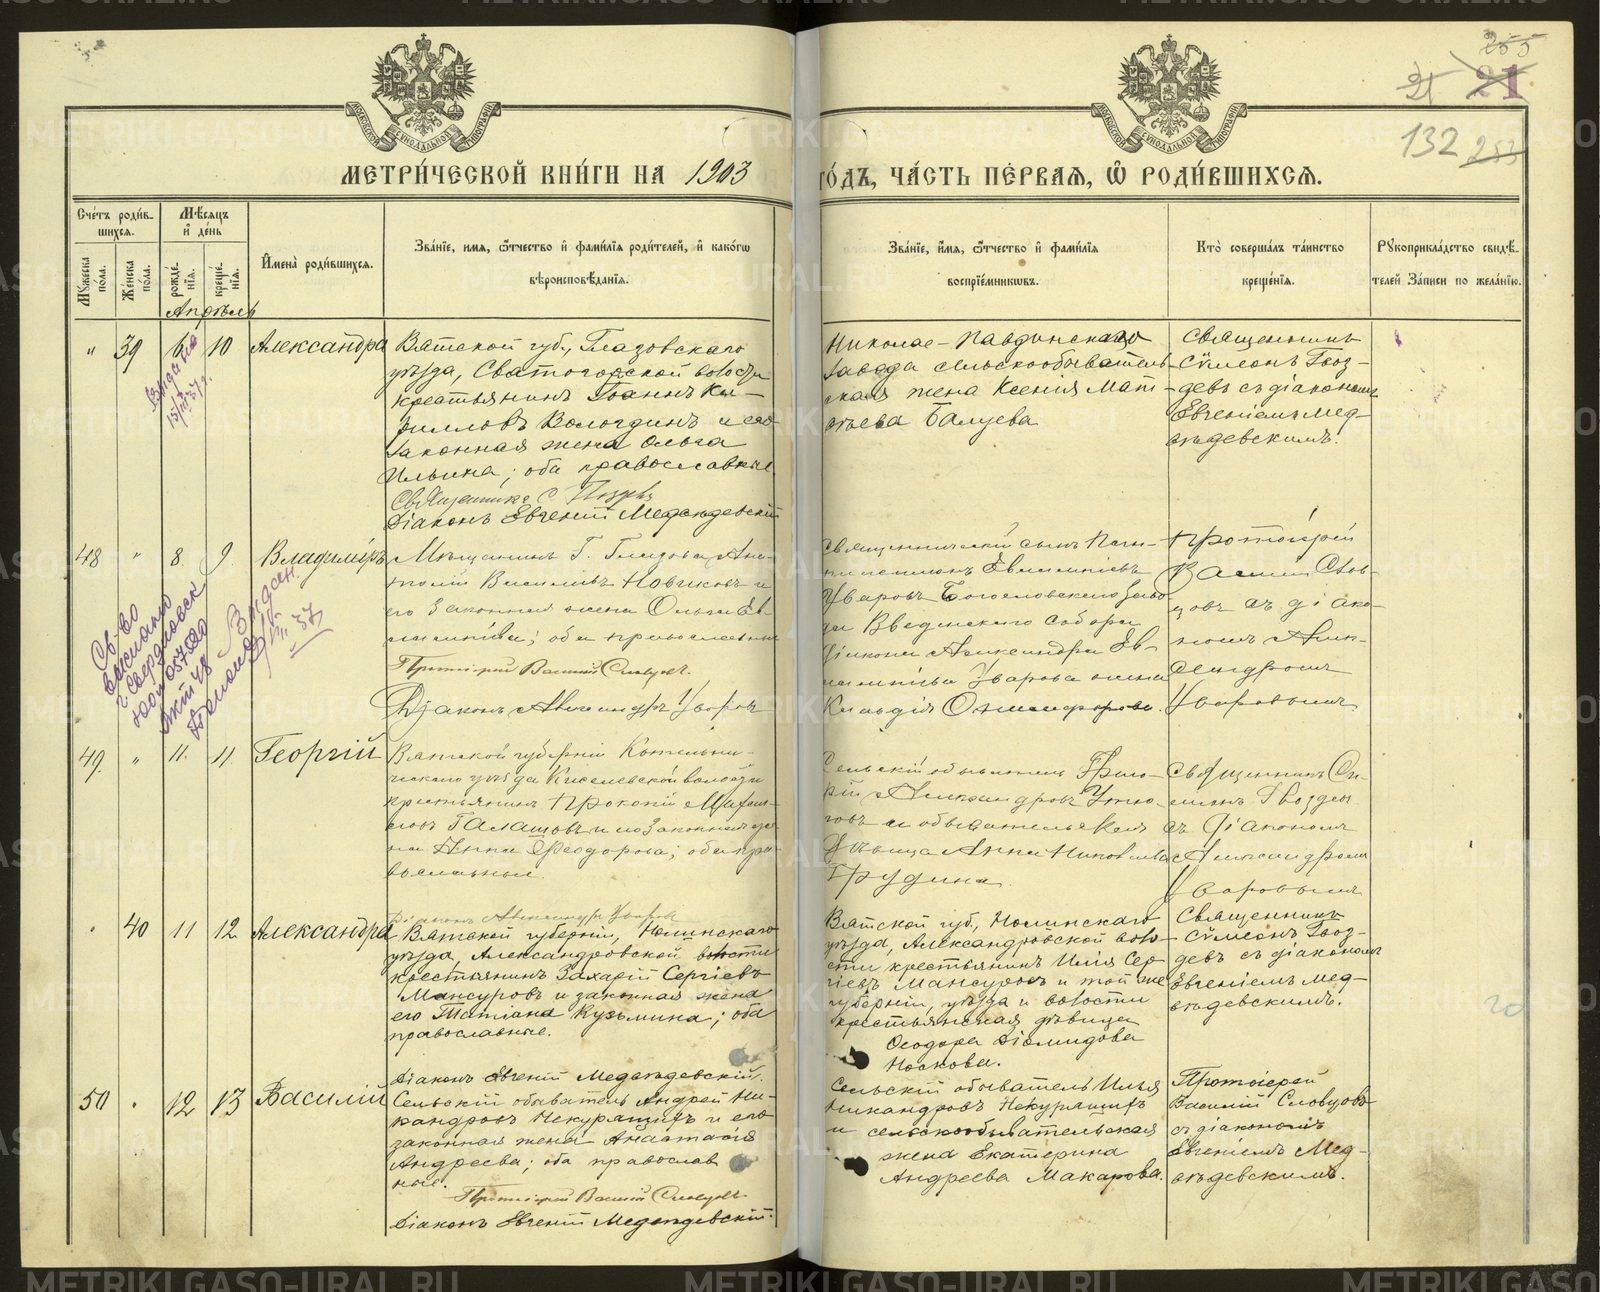 255
21 21
132 253
МОСКОВСКОЙ СѴНОДАЛЬНОЙ ТИПОГРАФІИ
МОСКОВСКОЙ СѴНОДАЛЬНОЙ ТИПОГРАФІИ
МЕТРИ́ЧЕСКОЙ КНИ́ГИ НА 1903 ГО́ДЪ, ЧА́СТЬ ПЕ́РВАЯ, Ѽ РОДИ́ВШИХСЯ.
Сче́тъ роди́в-
шихся.
Мꙋ́жеска пола.
Же́нска пола.
Мѣ́сяцъ
и҆ де́нь
рожде́-
нїя.
креще́-
нїя.
И҆мена̀ роди́вшихся.
Зва́нїе, имя, ѻ҆́тчество и҆ фами́лїя роди́телей, и҆ како́гѡ
вѣроисповѣ́данїя.
Зва́нїе, и҆́мя, ѻ҆́тчество и҆ фами́лїя
воспрїе́мникѡвъ.
Кто̀ соверша́лъ та́инство
креще́нїя.
Рꙋкоприкла́дство свидѣ́-
телей За́писи по жела́нїю.
Апрѣль
" 39 6 10 Александра
Вятской губ., Глазовскаго
уѣзда, Святогорской волости
крестьянинъ Іоаннъ Ки-
рилловъ Вологдинъ и его
законная жена Ольга
Ильина; оба православные
Священникъ С. Гвоздевъ
Діаконъ Евгеній Медвѣдевскій
Николае-Павдинскаго
завода сельскообыватель-
ская жена Ксенія Мат-
вѣева Балуева
Священникъ
Сѵмеонъ Гвоз-
девъ съ діакономъ
Евгеніемъ Мед-
вѣдевскимъ.
48 " 8. 9. Владиміръ
Мѣщанинъ г. Глазова Ана-
толій Васильевъ Новиковъ и
его законная жена Ольга Ев-
лампіева; оба православные
Протоіерей Василій Словцовъ.
Діаконъ Александръ Уваровъ
Священническій сынъ
Евлампіевъ
Уваровъ Богословскаго заво-
да Введенскаго собора
діакона Александра Ев-
лампіева Уварова жена
Клавдія
Протоіерей
Василій Слов-
цовъ съ діако-
номъ Алек-
сандромъ
Уваровымъ
Св-во
выслано
г. Свердловск
Акт 48
Выдан
37
49. " 11. 11. Георгій
Вятской губерніи Котельни-
ческаго уѣзда Киселевской волости
крестьянинъ Прокопій
Галашовъ и его законная же-
на Анна Ѳеодорова; оба пра-
вославные.
Діаконъ Александръ Уваровъ
Сельскій обыватель Григо-
рій Александровъ
и обывательская
дѣвица Анна Николаева
Грудина.
Священникъ Си-
меонъ Гвоздевъ
съ діакономъ
Александромъ
Уваровымъ
" 40 11 12 Александра
Вятской губерніи, Нолинскаго
уѣзда, Александровской волости
крестьянинъ Захарій Сергіевъ
Мансуровъ и законная жена
его Татіана Кузьмина; оба
православные.
Діаконъ Евгеній Медвѣдевскій.
Вятской губ., Нолинскаго
уѣзда, Александровской воло-
сти крестьянинъ Илія Сер-
гіевъ Мансуровъ и той же
губерніи, уѣзда и волости
крестьянская дѣвица
Ѳеодора Діомидова
Носкова.
Священникъ
Сѵмеонъ Гвоз-
девъ съ діакономъ
Евгеніемъ Мед-
вѣдевскимъ.
20
50 " 12 13 Василій
Сельскій обыватель Андрей Ни-
кандровъ Некурящихъ и его
законная жена Анастасія
Андреева; оба православ
ные.
Протоіерей Василій Словцовъ
Діаконъ Евгеній Медвѣдевскій.
Сельскій обыватель Илья
Никандровъ Некурящихъ
и сельскообывательская
жена Екатерина
Андреева Макарова.
Протоіерей
Василій Словцовъ
съ діакономъ
Евгеніемъ Мед-
вѣдевскимъ.
METRIKI.GASO-URAL.RU